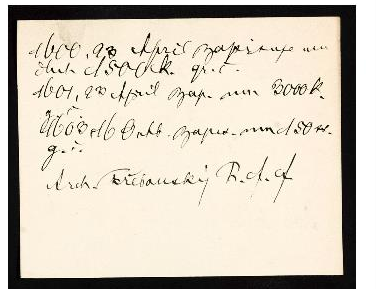 1600, 23 April zapisuje mu
dluh 1500 k. gr. č.
1601, 23 April zap. mu 3000 k.
1603 16 Octb. zapis. mu 150 k.
g. č.
Arch. Třeboňský